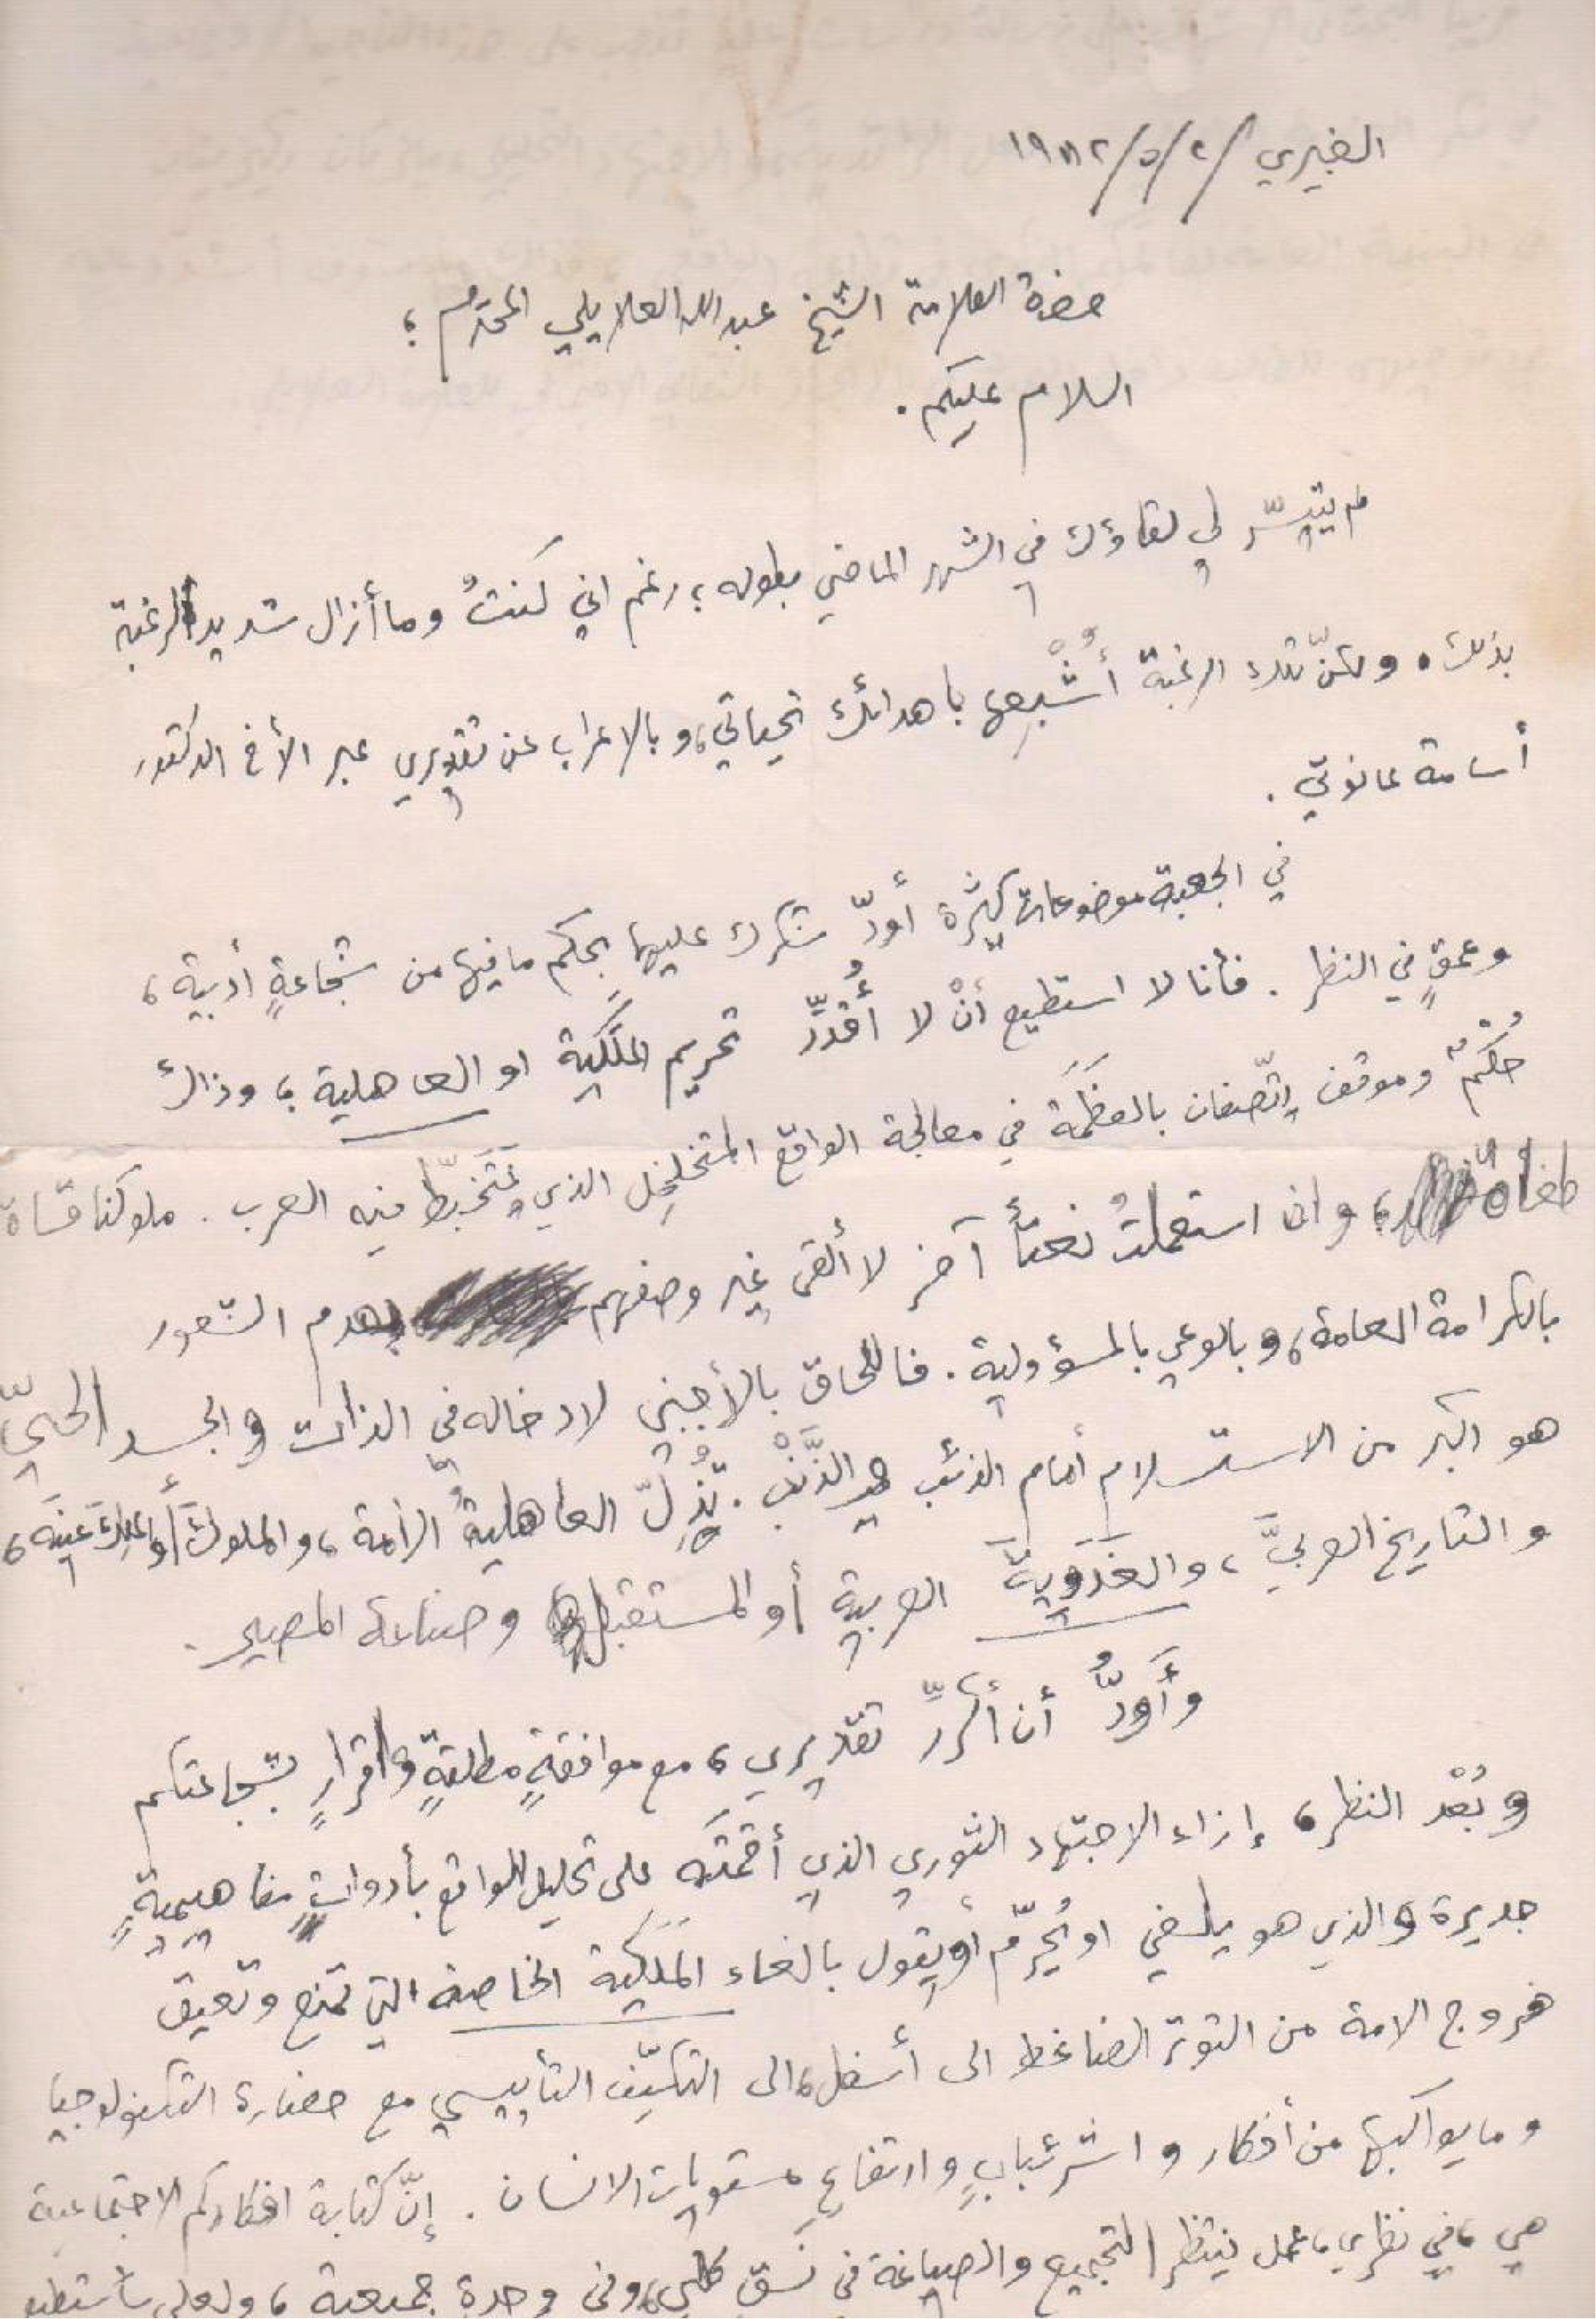 الغبيري ٢/٥/١٩٨٢
حضرة العلامة الشيخ عبدالله العلايلي المحترم ؛
السلام عليكم .
لم يتيسّر لي لقاؤك في الشهر الماضي بطوله ؛ رغم اني كنتُ وما أزال شديد الرغبة
بذلك . ولكنّ تلك الرغبة أُشْبِعها باهدائك تحياتي ، و بالاعراب عن تقديري عبر الأخ الدكتور
أسامة عانوتي .
في الجعبة موضوعات كثيرة أودّ شكرك عليها بحكم ما فيها من شجاعةٍ أدبية ،
وعمقٍ في النظر . فأنا لا استطيع أنْ لا أُقدِّر تحريم المَلَكية او العاهلية ؛ وذاك
حُكْمٌ وموقف يتّصفان بالعظَمَة في معالجة الواقع المتخلخِل الذي يَتَخَبّط فيه العرب . ملوكنا قساة
طغاة ؛ وان استعملتُ نعتاً آخر لا ألقى غير وصفهم بعدم الشعور
بالكرامة العامة ، و بالوعي بالمسؤولية . فاللحاق بالأجنبي لادخاله في الذات والجسد الحيّ
هو اكبر من الاستسلام أمام الذئب الذَّنْب . تُذِلّ العاهليةُ الأمة ، والملوكَ أو الملِكَ عينَه ،
والتاريخ العربيَّ ، والغَدَوِيةَ العربية أو المستقبل وصناعة المصير .
وأَوَدُّ أن أكرِّر تقديري ، مع موافقةٍ مطلقةٍ واقرارٍ بشجاعتكم
وبُعْد النظر ، إزاء الاجتهاد الثوري الذي أقمتَه على تحليل الواقع بأدواتٍ مفاهيميةٍ
جديرة والذي هو يلغي او يُحرّم أو يقول بالغاء المَلَكية الخاصة التي تمنع وتعيق
خروج الامة من التوتر الضاغط الى أسفل ، الى التكيّف التأييسي مع حضارة التكنولوجيا
وما يواكبها من أفكار واشرئبابٍ وارتفاعِ مستويات الانسان . إنّ كتابة افكاركم الاجتماعية
هي ، في نظري ، عمل ينتظر التجميع والصياغة في نَسَق كلي ، وفي وحدة جميعية ، ولعلي سأستطيع